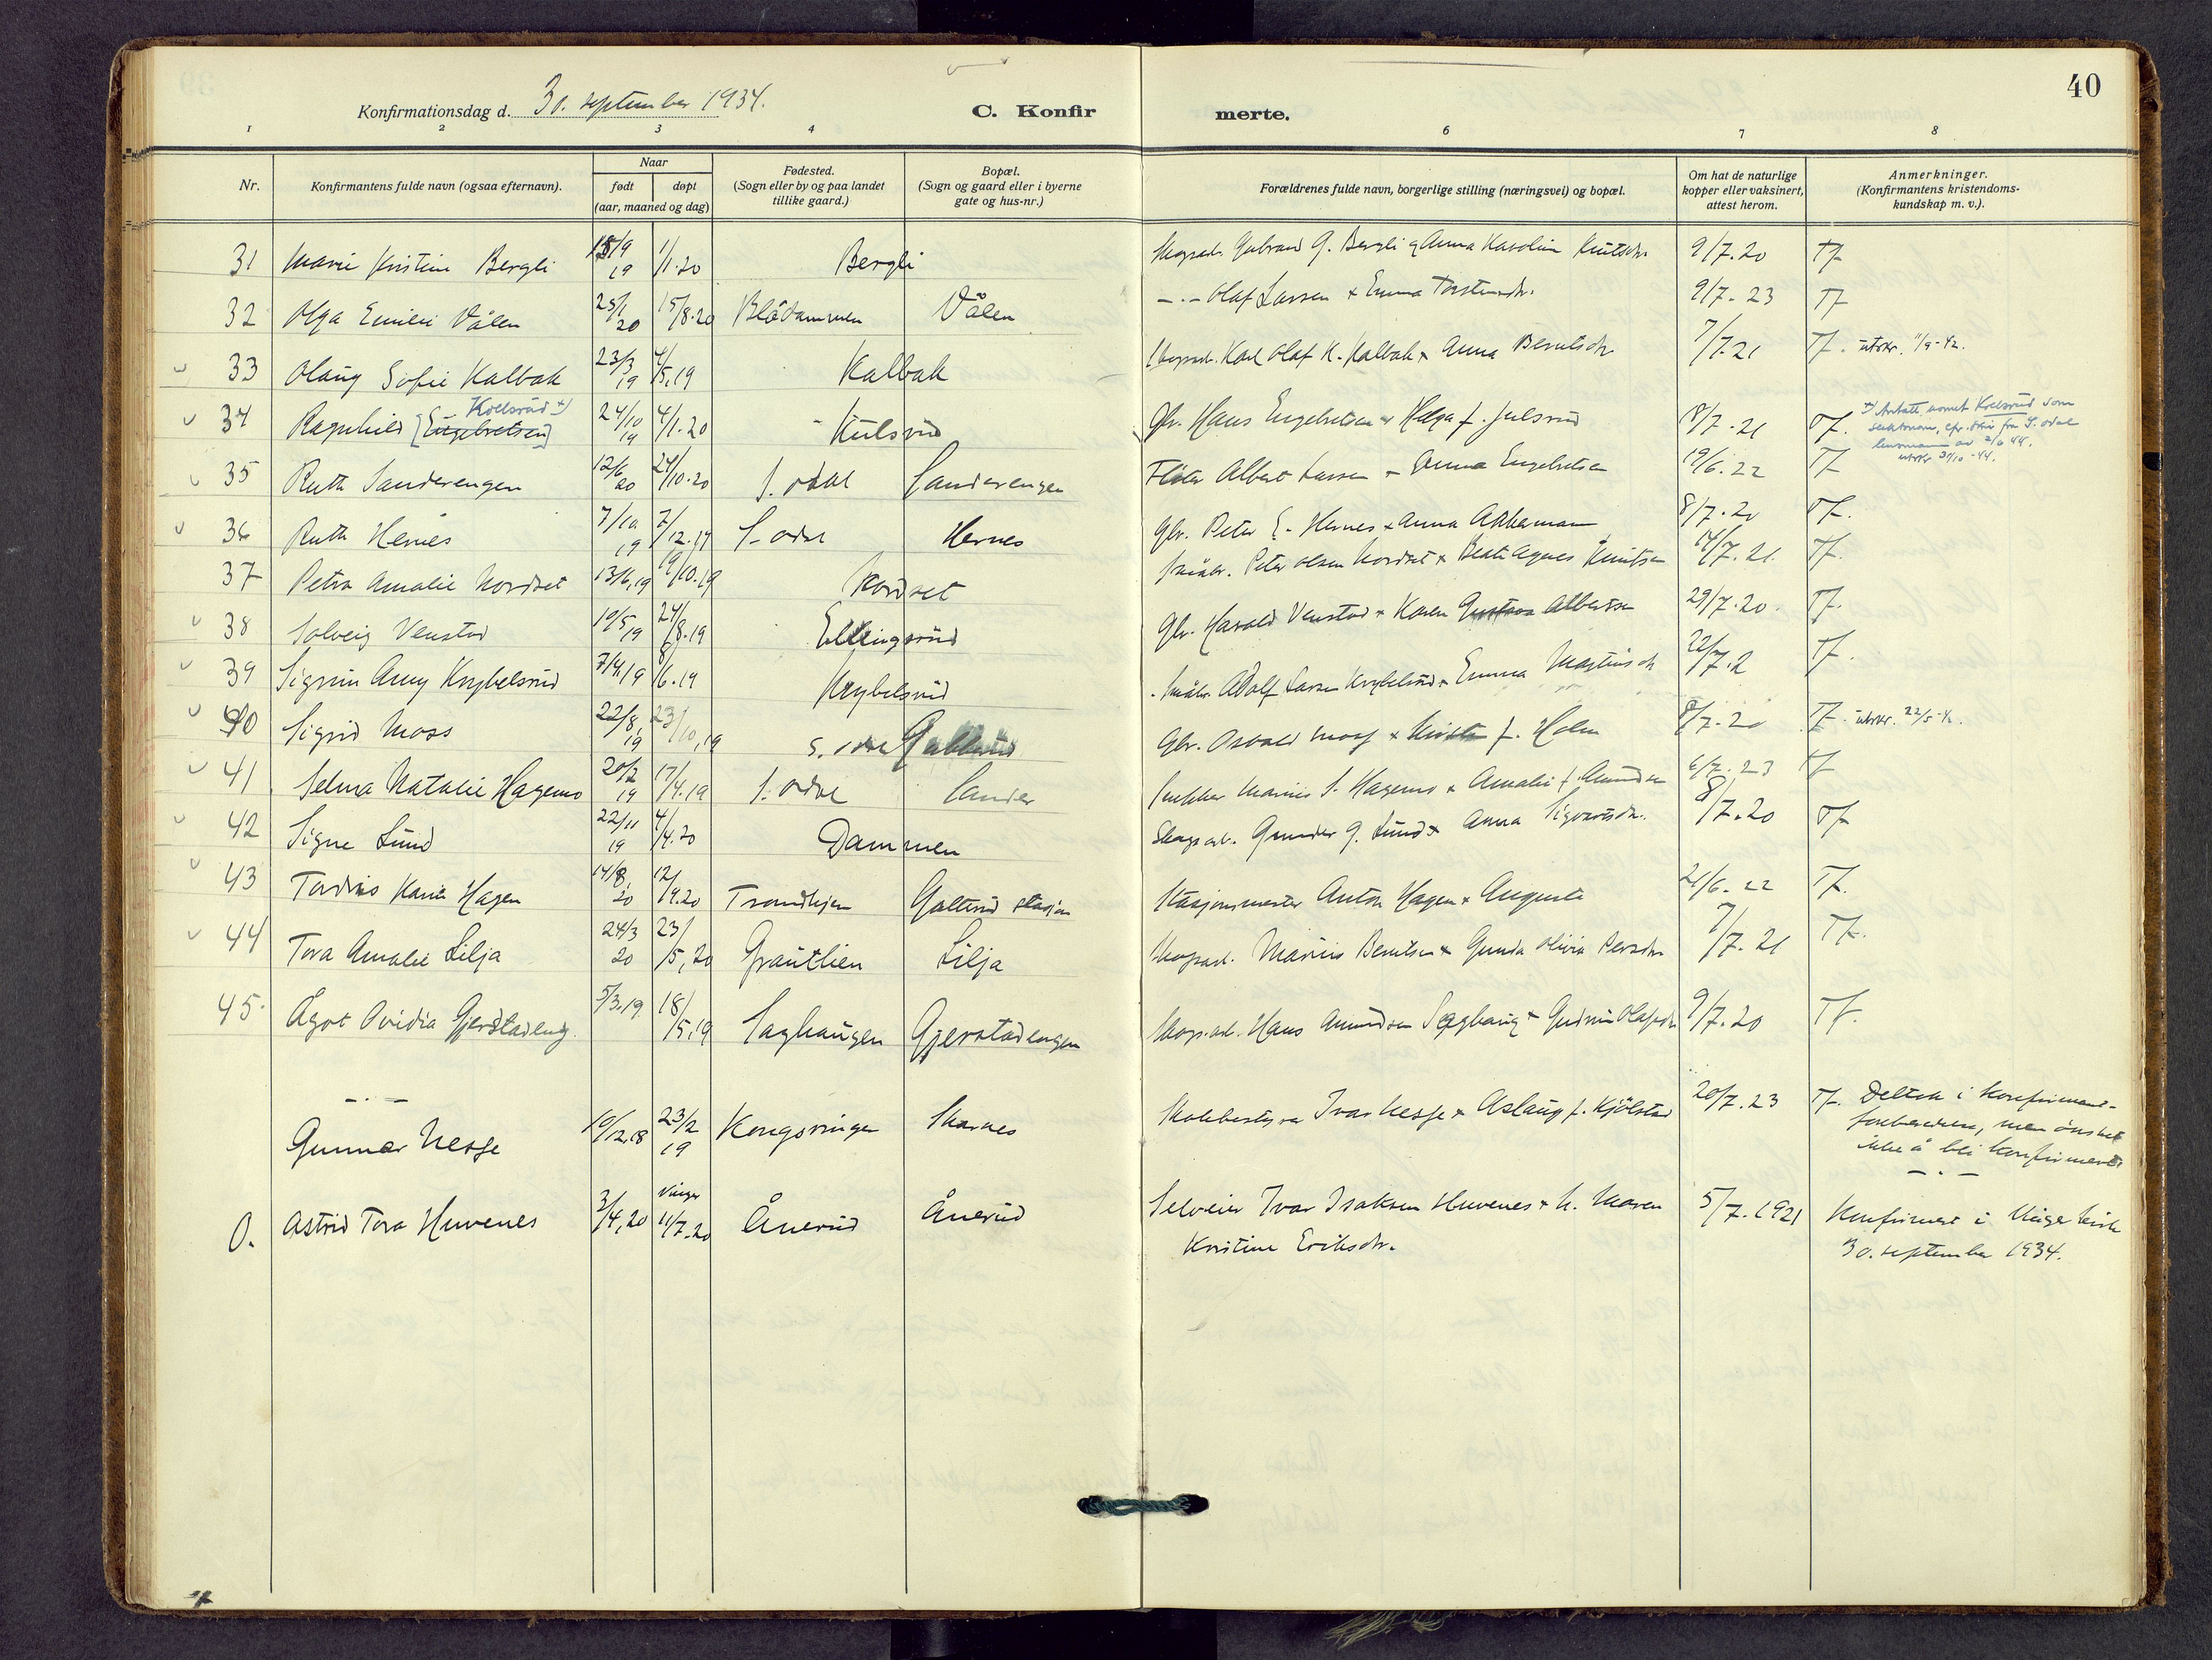 40
Konfirmationsdag d. 30. september 1934.
C. Konfir merte.
1 2 3 4 6 7 8
Nr.
Konfirmantens fulde navn (ogsaa efternavn).
Naar
født døpt
(aar, maaned og dag)
Fødested.
(Sogn eller by og paa landet
tillike gaard.)
Bopæl.
(Sogn og gaard eller i byerne
gate og hus-nr.)
Forældrenes fulde navn, borgerlige stilling (næringsvei) og bopæl.
Om hat de naturlige
kopper eller vaksinert,
attest herom.
Anmerkninger.
(Konfirmantens kristendoms-
kundskap m. v.).
31 Marie Kristine Bergli 18/9 19 1/1.20 Bergli Skogsarb. Gulbrand G. Bergli & Anna Karoline Knutsdtr. 9/7.20 Tf
32 Olga Emilie Vålen 25/1 20 15/8.20 Blådammen Vålen -.- Olaf Larsen & Emma Torstensdtr. 9/7-23 Tf
33 Olaug Sofie Kalbak 23/3 19 4/5.19 Kalbak Skogsarb. Karl Olaf K. Kalbak & Anna Berntsdtr 7/7.21 Tf. utskr. 11/9-42.
34 Ragnhild [Engebretsen] Koelsrud +) 24/10 19 4/1.20 Kulsrud Gbr. Hans Engebretsen & Helga f. Julsrud 8/7.21 Tf. +) Antatt navnet Koelsrud som
slektsnavn, cfr. skriv fra S. Odal
lensmann av 2/6 44.
utskr 31/10-44.
35 Ruth Sanderengen 12/6 20 24/10.20 S. Odal Sanderengen Fløter Albert Larsen & Emma Engebretsen 19/6.22 Tf
36 Ruth Hernes 7/10 19 7/12.19 S. Odal Hernes Gbr. Peter E. Hernes & Anna Abrahamsen 8/7.20 Tf.
37 Petra Amalie Nordset 13/6,19 19/10.19 Nordset Småbr. Peter Olsen Nordset & Beate Agnes Knutsen 14/7.21. Tf.
38 Solveig Venstad 19/5 19 24/8.19 Ellingsrud Gbr. Harald Venstad & Karen Gustava Albertsen 29/7.20. Tf.
39 Sigrun Anny Krybelsrud 7/4.19 8/6.19 Krybelsrud Småbr. Adolf Larsen Krybelsrud & Emma Martinsdtr 22/7.2 Tf.
40 Sigrid Moss 22/8, 19 23/10,19 S. Odal Galterud Gbr. Osvald Moss & f. Holm 8/7.20 Tf. utskr. 22/5-42.
41 Selma Natalie Hagemo 20/2 19 17/4.19 S. Odal Sander Snekker Marius S. Hagemo & Amalie f. Amundsen 6/7.23 Tf
42 Signe Lund 22/11 19 4/4.20 Dammen Skogsarb. Gunder G. Lund & Anna Sigvartsdtr. 8/7.20 Tf
43 Tordis Karin Hagen 14/8, 20 12/9.20 Trondhjem Galterud stasjon Stasjonsmester Anton Hagen & Augusta 21/6-22 Tf.
44 Tora Amalie Lilja 24/3 20 23/5,20 Grautlien Lilja Skogsarb. Marius Berntsen & Gunda Olivia Persdtr 7/7.21 Tf.
45. Ågot Ovidia Gjerstadeng. 5/3.19 18/5,19 Saghaugen Gjerstadengen Skogsarb. Hans Amundsen Saghaug & Gudrun Olafsdtr. 9/7.20 Tf.
-.-
Gunnar Nesse 19/12,18 23/2 19 Kongsvinger Skarnes Skolebestyrer Ivar Nesse & Aslaug f. Kjölstad 20/7.23 Tf. Deltok i konfirmant-
forberedelsen, men ønsket
ikke å bli konfirmert
-.-
0. Astrid Tora Huvenes 3/4,20 Vinger 11/7.20 Ånerud Ånerud Selveier Ivar Isaksen Huvenes & h. Maren
Kristine Eriksdtr. 5/7.1921 Konfirmert i Vinger kirke
30. september 1934.